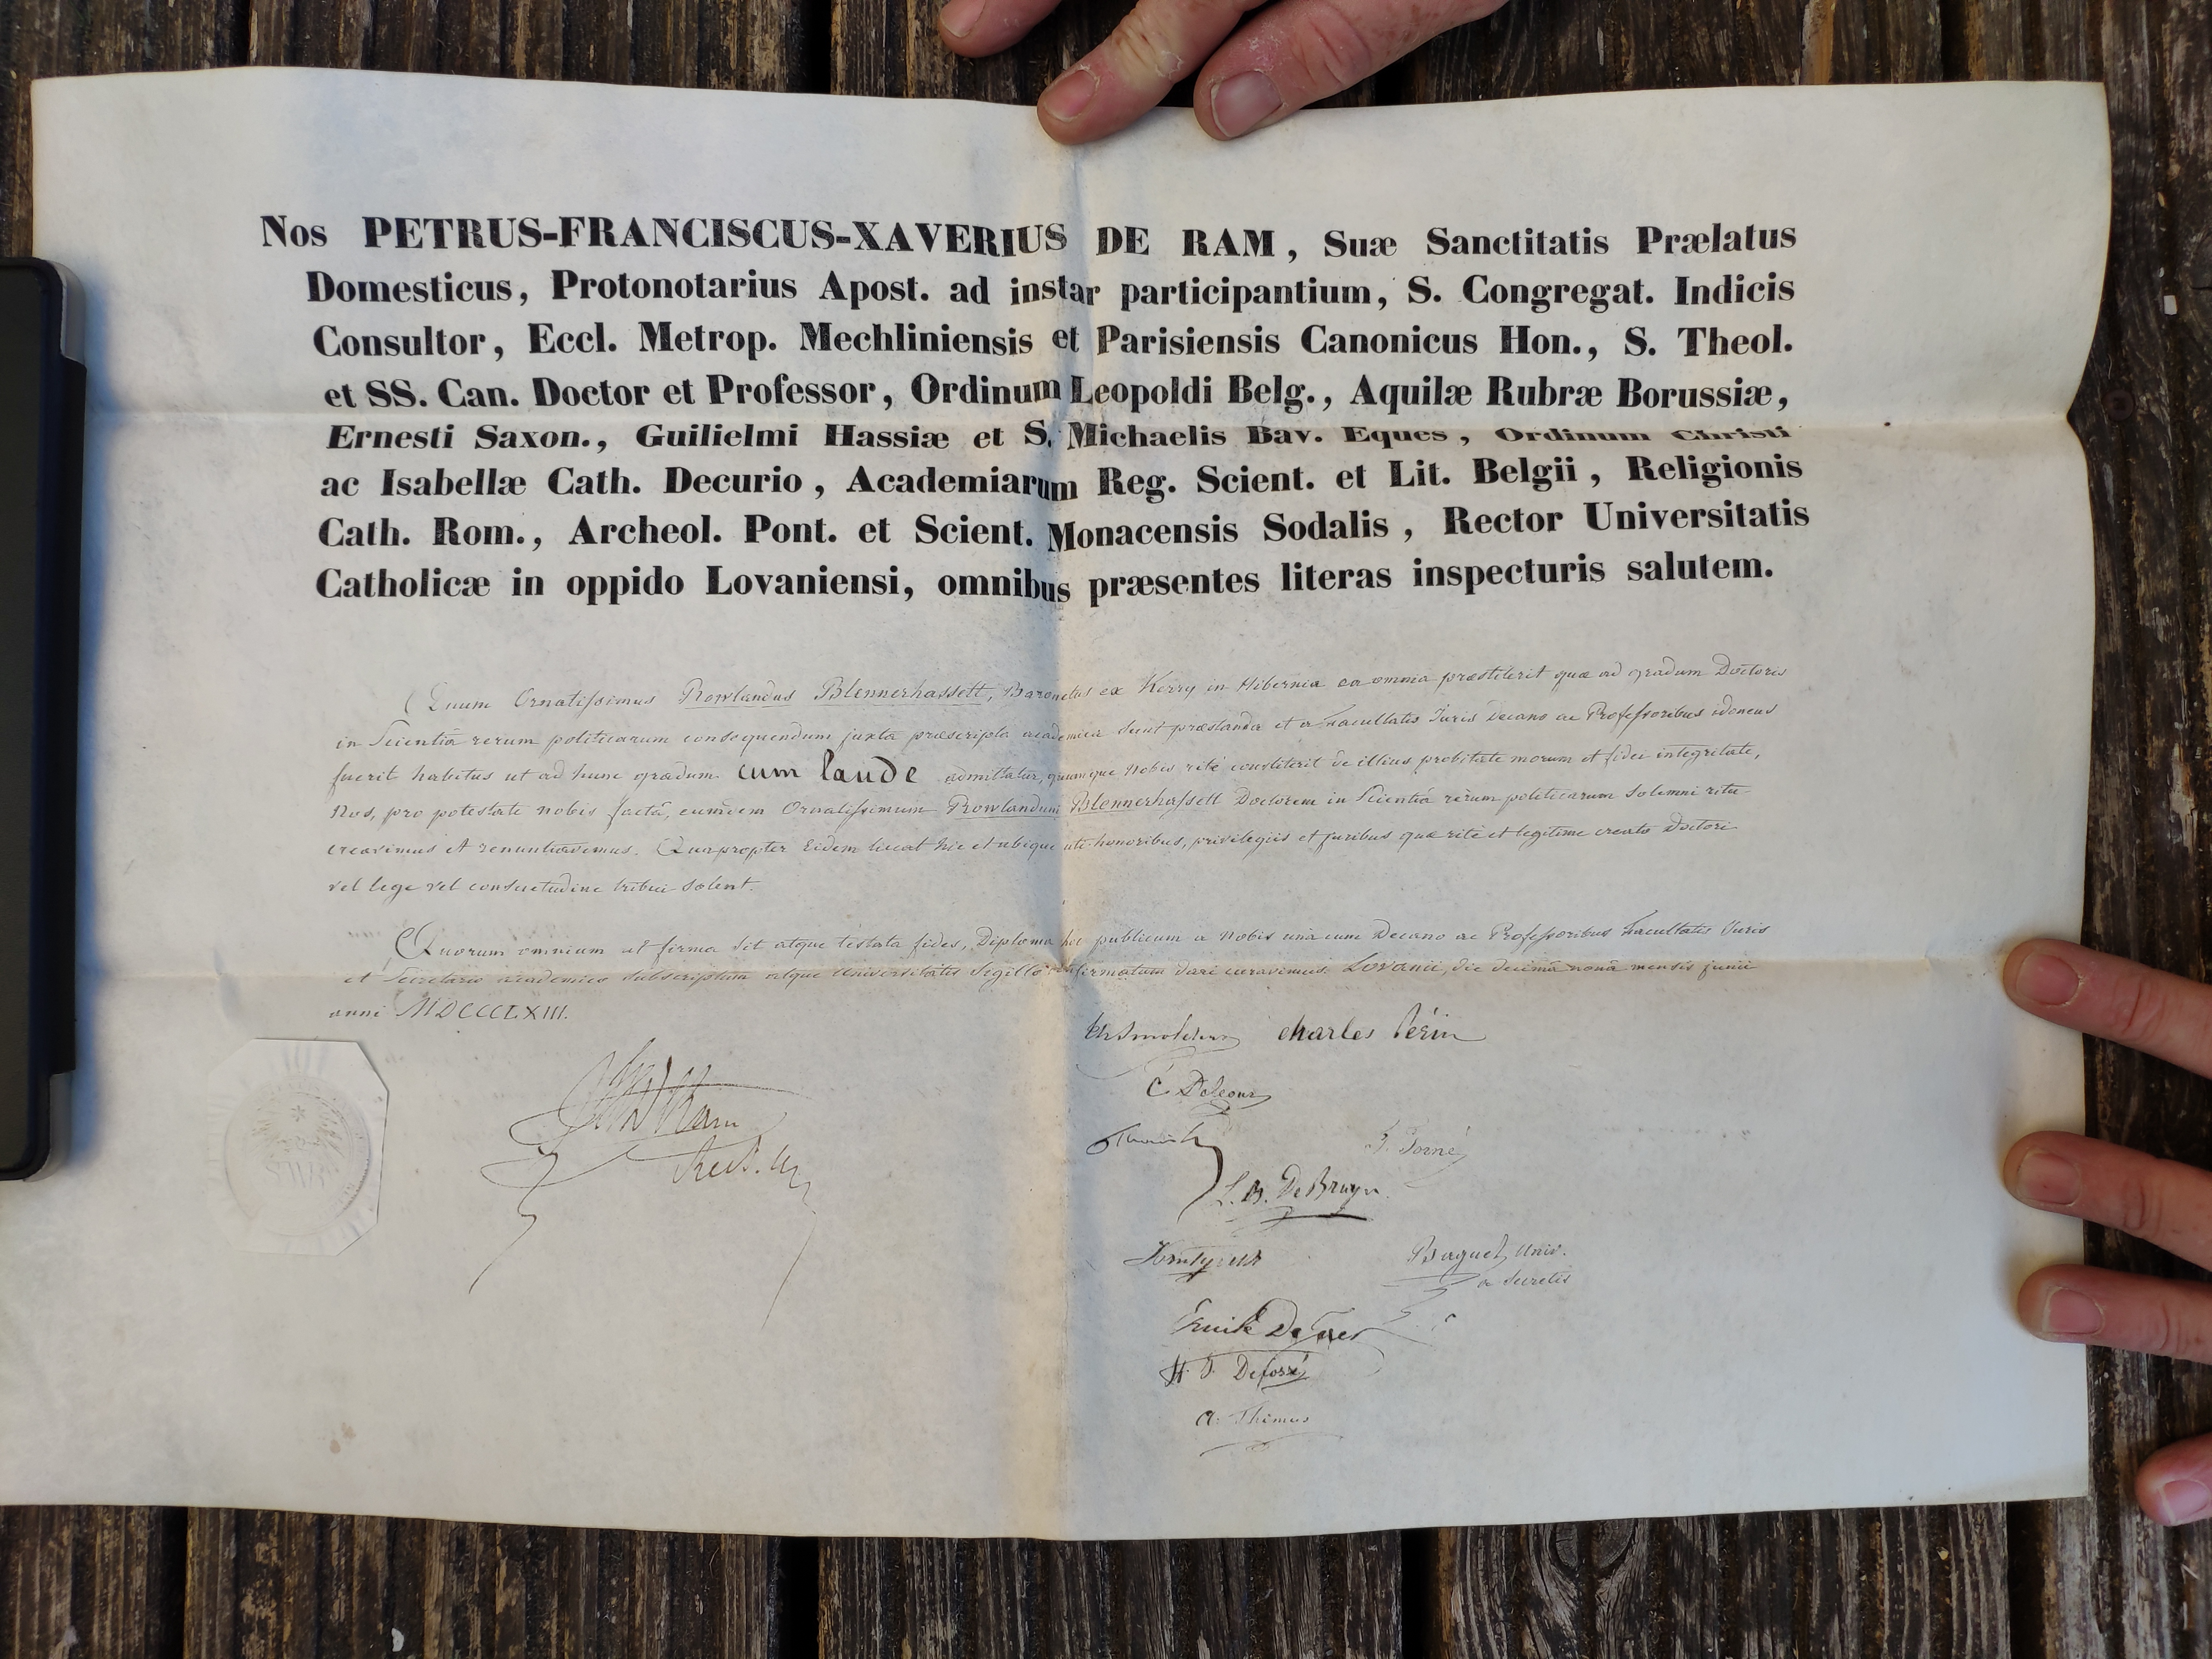 Nos PETRUS-FRANCISCUS-XAVERIUS DE RAM, Suæ Sanctitatis Prælatus
Domesticus, Protonotarius Apost. ad instar participantium, S. Congregat. Indicis
Consultor, Eccl. Metrop. Mechliniensis et Parisiensis Canonicus Hon., S. Theol.
et SS. Can. Doctor et Professor, Ordinum Leopoldi Belg., Aquilæ Rubræ Borussiæ,
Ernesti Saxon., Guilielmi Hassiæ et S. Michaelis Bav. Eques, Ordinum Christi
ac Isabellæ Cath. Decurio, Academiarum Reg. Scient. et Lit. Belgii, Religionis
Cath. Rom., Archeol. Pont. et Scient. Monacensis Sodalis, Rector Universitatis
Catholicæ in oppido Lovaniensi, omnibus præsentes literas inspecturis salutem.
Quum Ornatissimus Rowlandus Blennerhassett, Baronetus ex Kerry in Hibernia ea omnia præstiterit quæ ad gradum Doctoris
in Scientiâ rerum politicarum consequendum juxta præscripta academica sunt præstanda et a Facultatis Juris Decano ac Professoribus idoneus
fuerit habitus ut ad hunc gradum cum laude admittatur, quumque Nobis rite constiterit de illius probitate morum et fidei integritate,
Nos, pro potestate nobis factâ, eumdem Ornatissimum Rowlandum Blennerhassett Doctorem in Scientiâ rerum politicarum solemni ritu
creavimus et renuntiavimus. Quapropter Eidem liceat hic et ubique uti honoribus, privilegiis et juribus quæ rite et legitime creato Doctori
vel lege vel consuetudine tribui solent.
Quorum omnium ut firma sit atque testata fides, Diploma hoc publicum a Nobis unà cum Decano ac Professoribus Facultatis Juris
et Secretario academico subscriptum atque Universitatis Sigillo confirmatum dari curavimus. Lovanii, die decimâ nonâ mensis junii
anni MDCCCLXIII.
Charles Périn
Ram
Rect. Un
L. B. De Bruyn
Baguet, Univ.
a Secretis
Emile De
A. Thimus